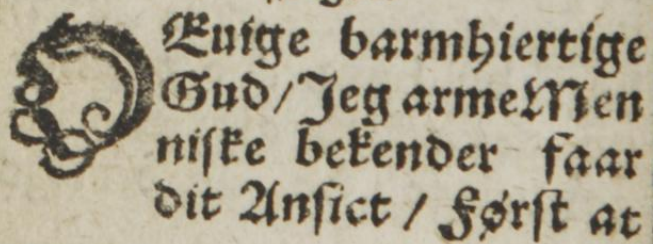 O Euige barmhiertige
Gud / Jeg arme Men
niske bekender faar
dit Ansict / Først at